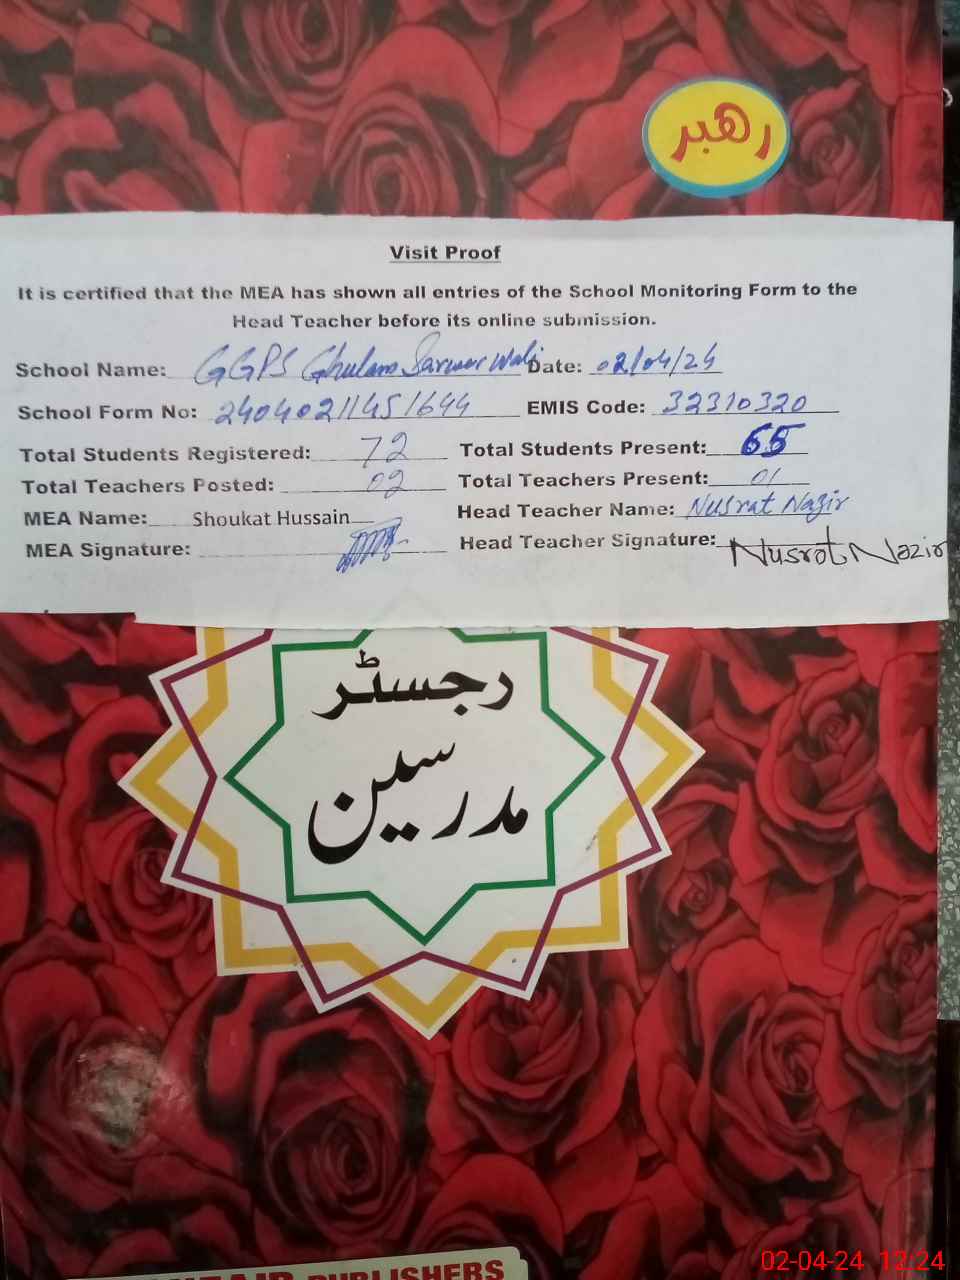 رهبر
Visit Proof
It is certified that the MEA has shown all entries of the School Monitoring Form to the
Head Teacher before its online submission.
School Name: GGPS Ghulam Sarwar Wali Date: 02/04/24
School Form No: 24040211451644 EMIS Code: 32310320
Total Students Registered: 72 Total Students Present: 65
Total Teachers Posted: 02 Total Teachers Present: 01
MEA Name: Shoukat Hussain Head Teacher Name: Nusrat Nazir
MEA Signature: Head Teacher Signature: Nusrat Nazir
رجسٹر
مدرسین
PUBLISHERS
02-04-24 12:24